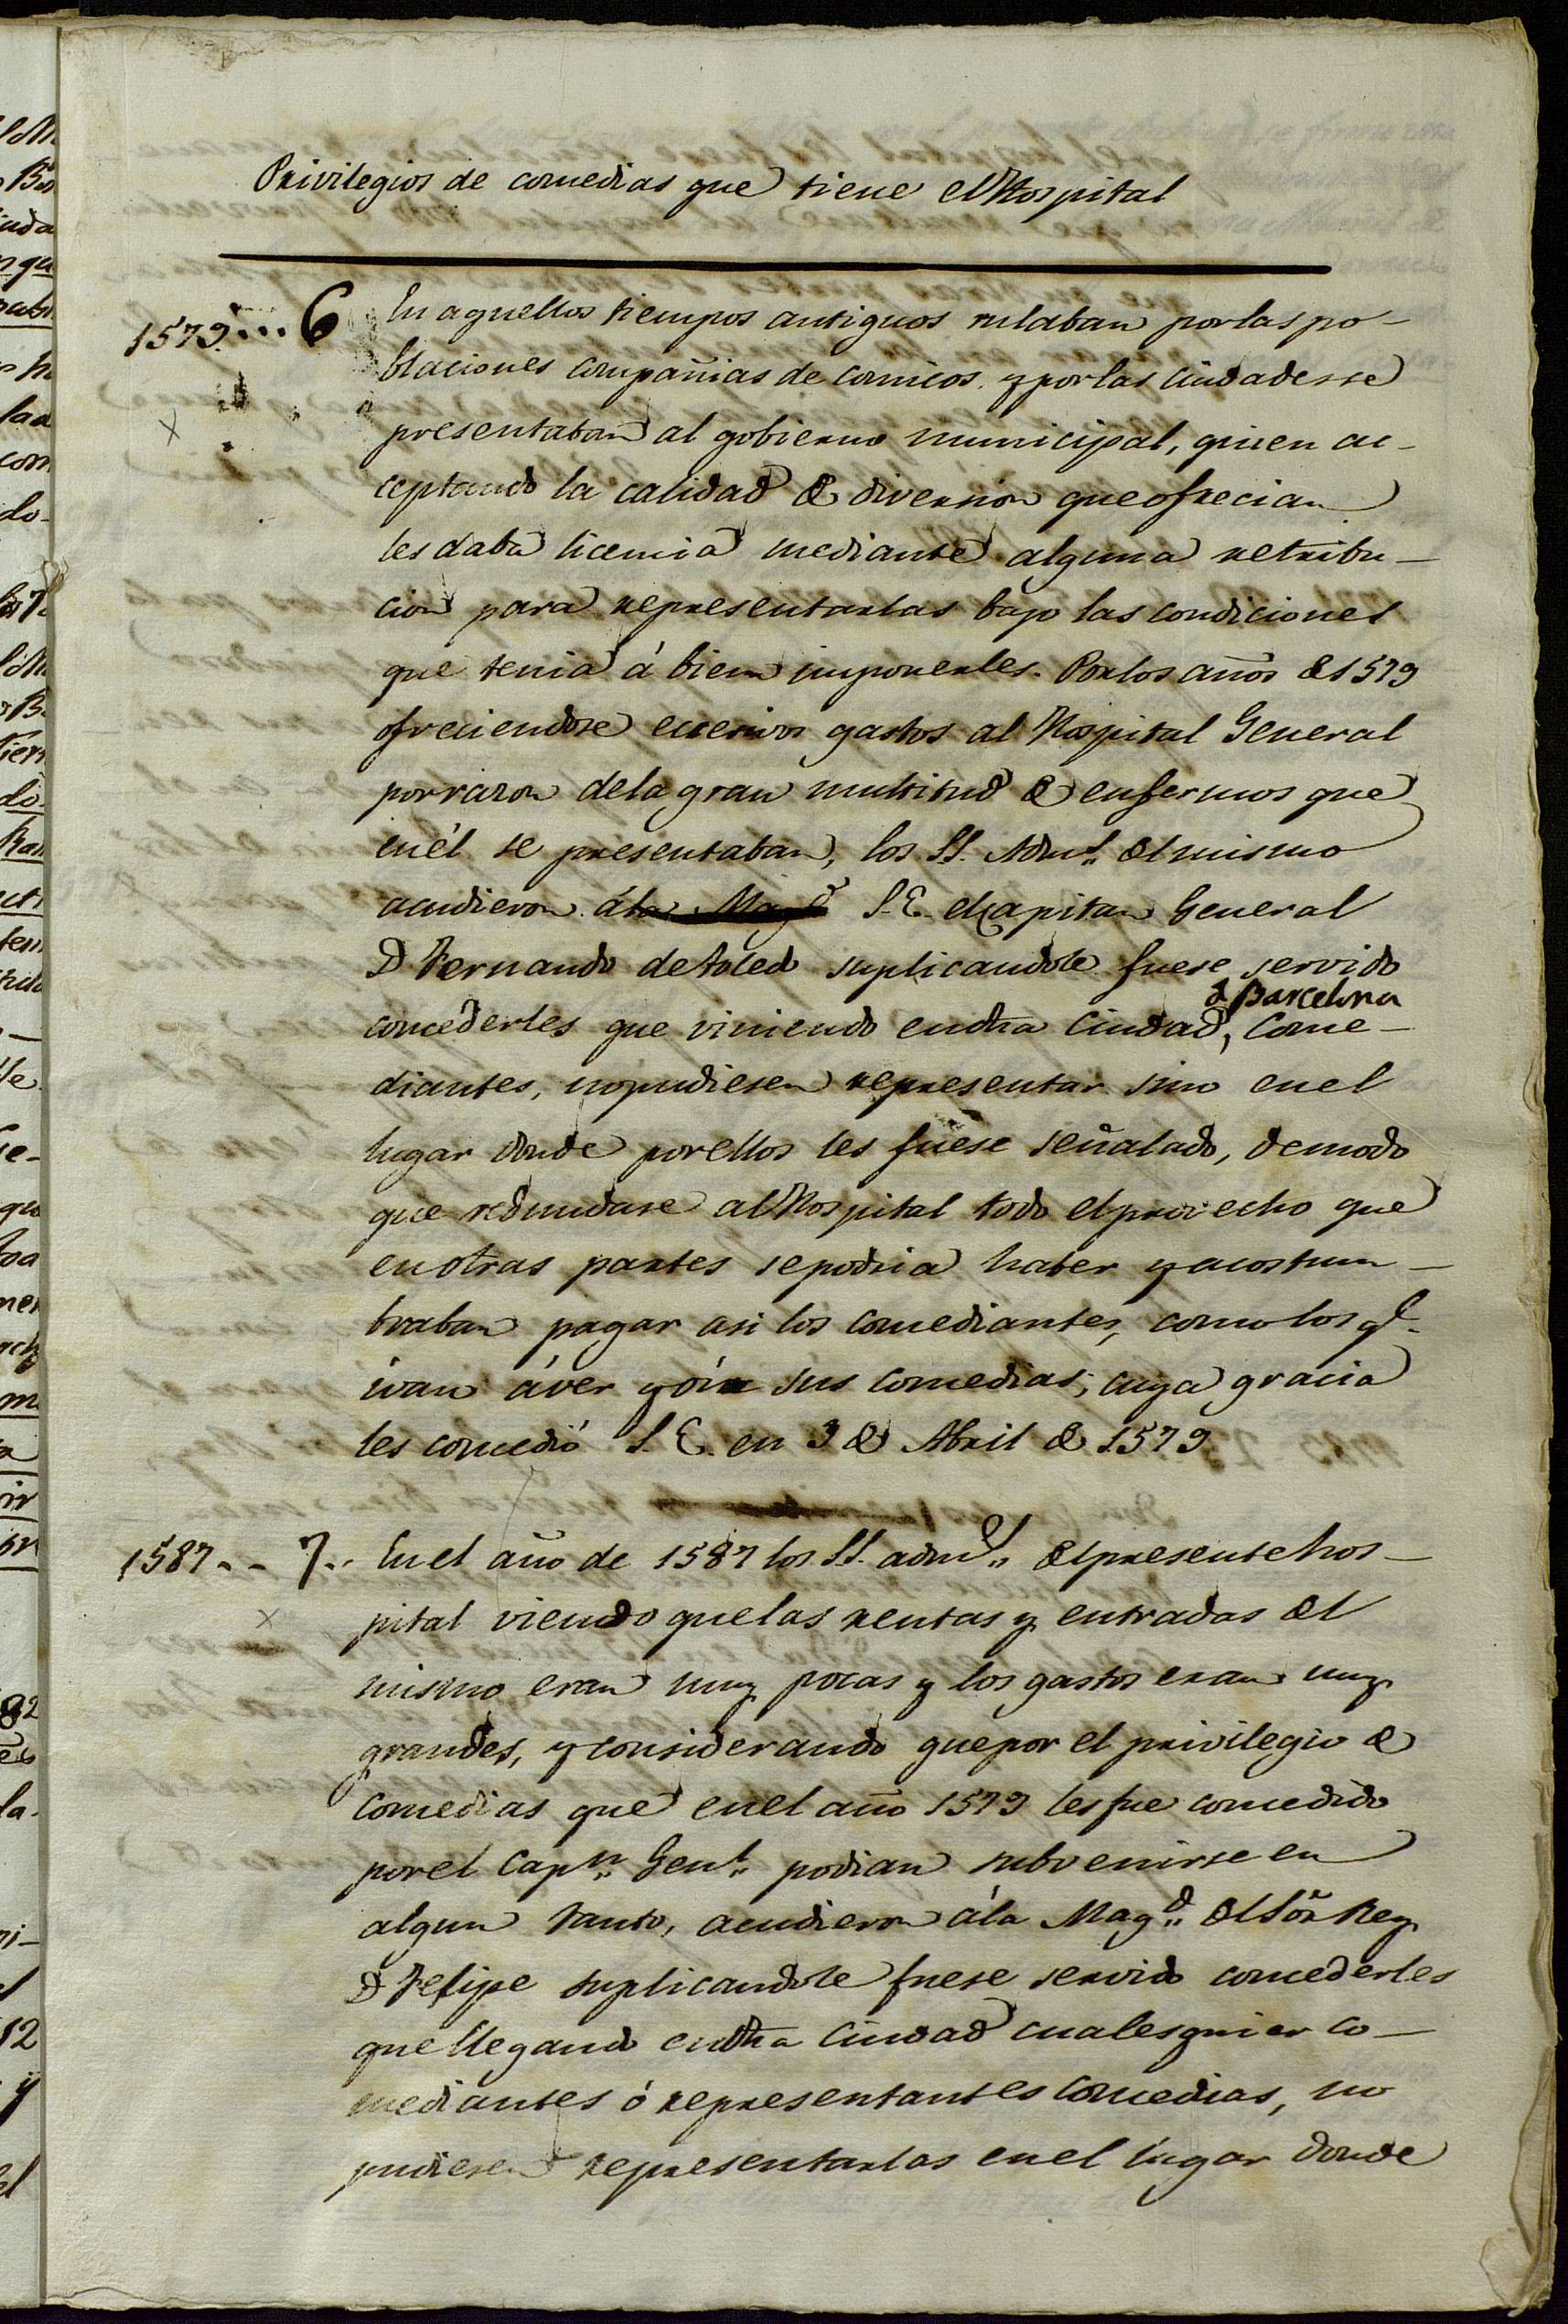 Privilegios de comedias que tiene el Hospital
1579... 6 En aquellos tiempos antiguos rulaban por las po-
blaciones compañias de comicos. y por las ciudades se
presentaban al gobierno municipal, quien ac-
ceptando la calidad de diversion que ofrecian
les daba licencia mediante alguna retribu-
cion para representarlas bajo las condiciones
que tenia á bien imponerles. Por los años de 1579
ofreciendose eccesivos gastos al Hospital General
por razon de la gran multitud de enfermos que
en él se presentaban, los SS. Adms. del mismo
acudieron á la Magd S. E. el Capitan General
D Fernando de Toledo suplicandole fuese servido
de Barcelona
concederles que viniendo en dha Ciudad, Come-
diantes, no pudiesen representar sino en el
lugar donde por ellos les fuese señalado, de modo
que redundase al Hospital todo el provecho que
en otras partes se podria haber y acostum-
braban pagar asi los comediantes, como los qe.
ivan á ver y óir sus comedias; cuya gracia
les concedió S. E. en 3 de Abril de 1579
1587.. 7.. En el año de 1587 los SS. admes. del presente hos-
pital viendo que las rentas y entradas del
mismo eran muy pocas y los gastos eran muy
grandes, y considerando que por el privilegio de
comedias que en el año 1579 les fue concedido
por el Capn. Genl. podian subvenirse en
algun tanto, acudieron á la Magd. del Sor Rey
D Felipe suplicandole fuese servido concederles
que llegando en dha Ciudad cualesquier co-
mediantes ó representantes comedias, no
pudiesen representarlas en el lugar donde